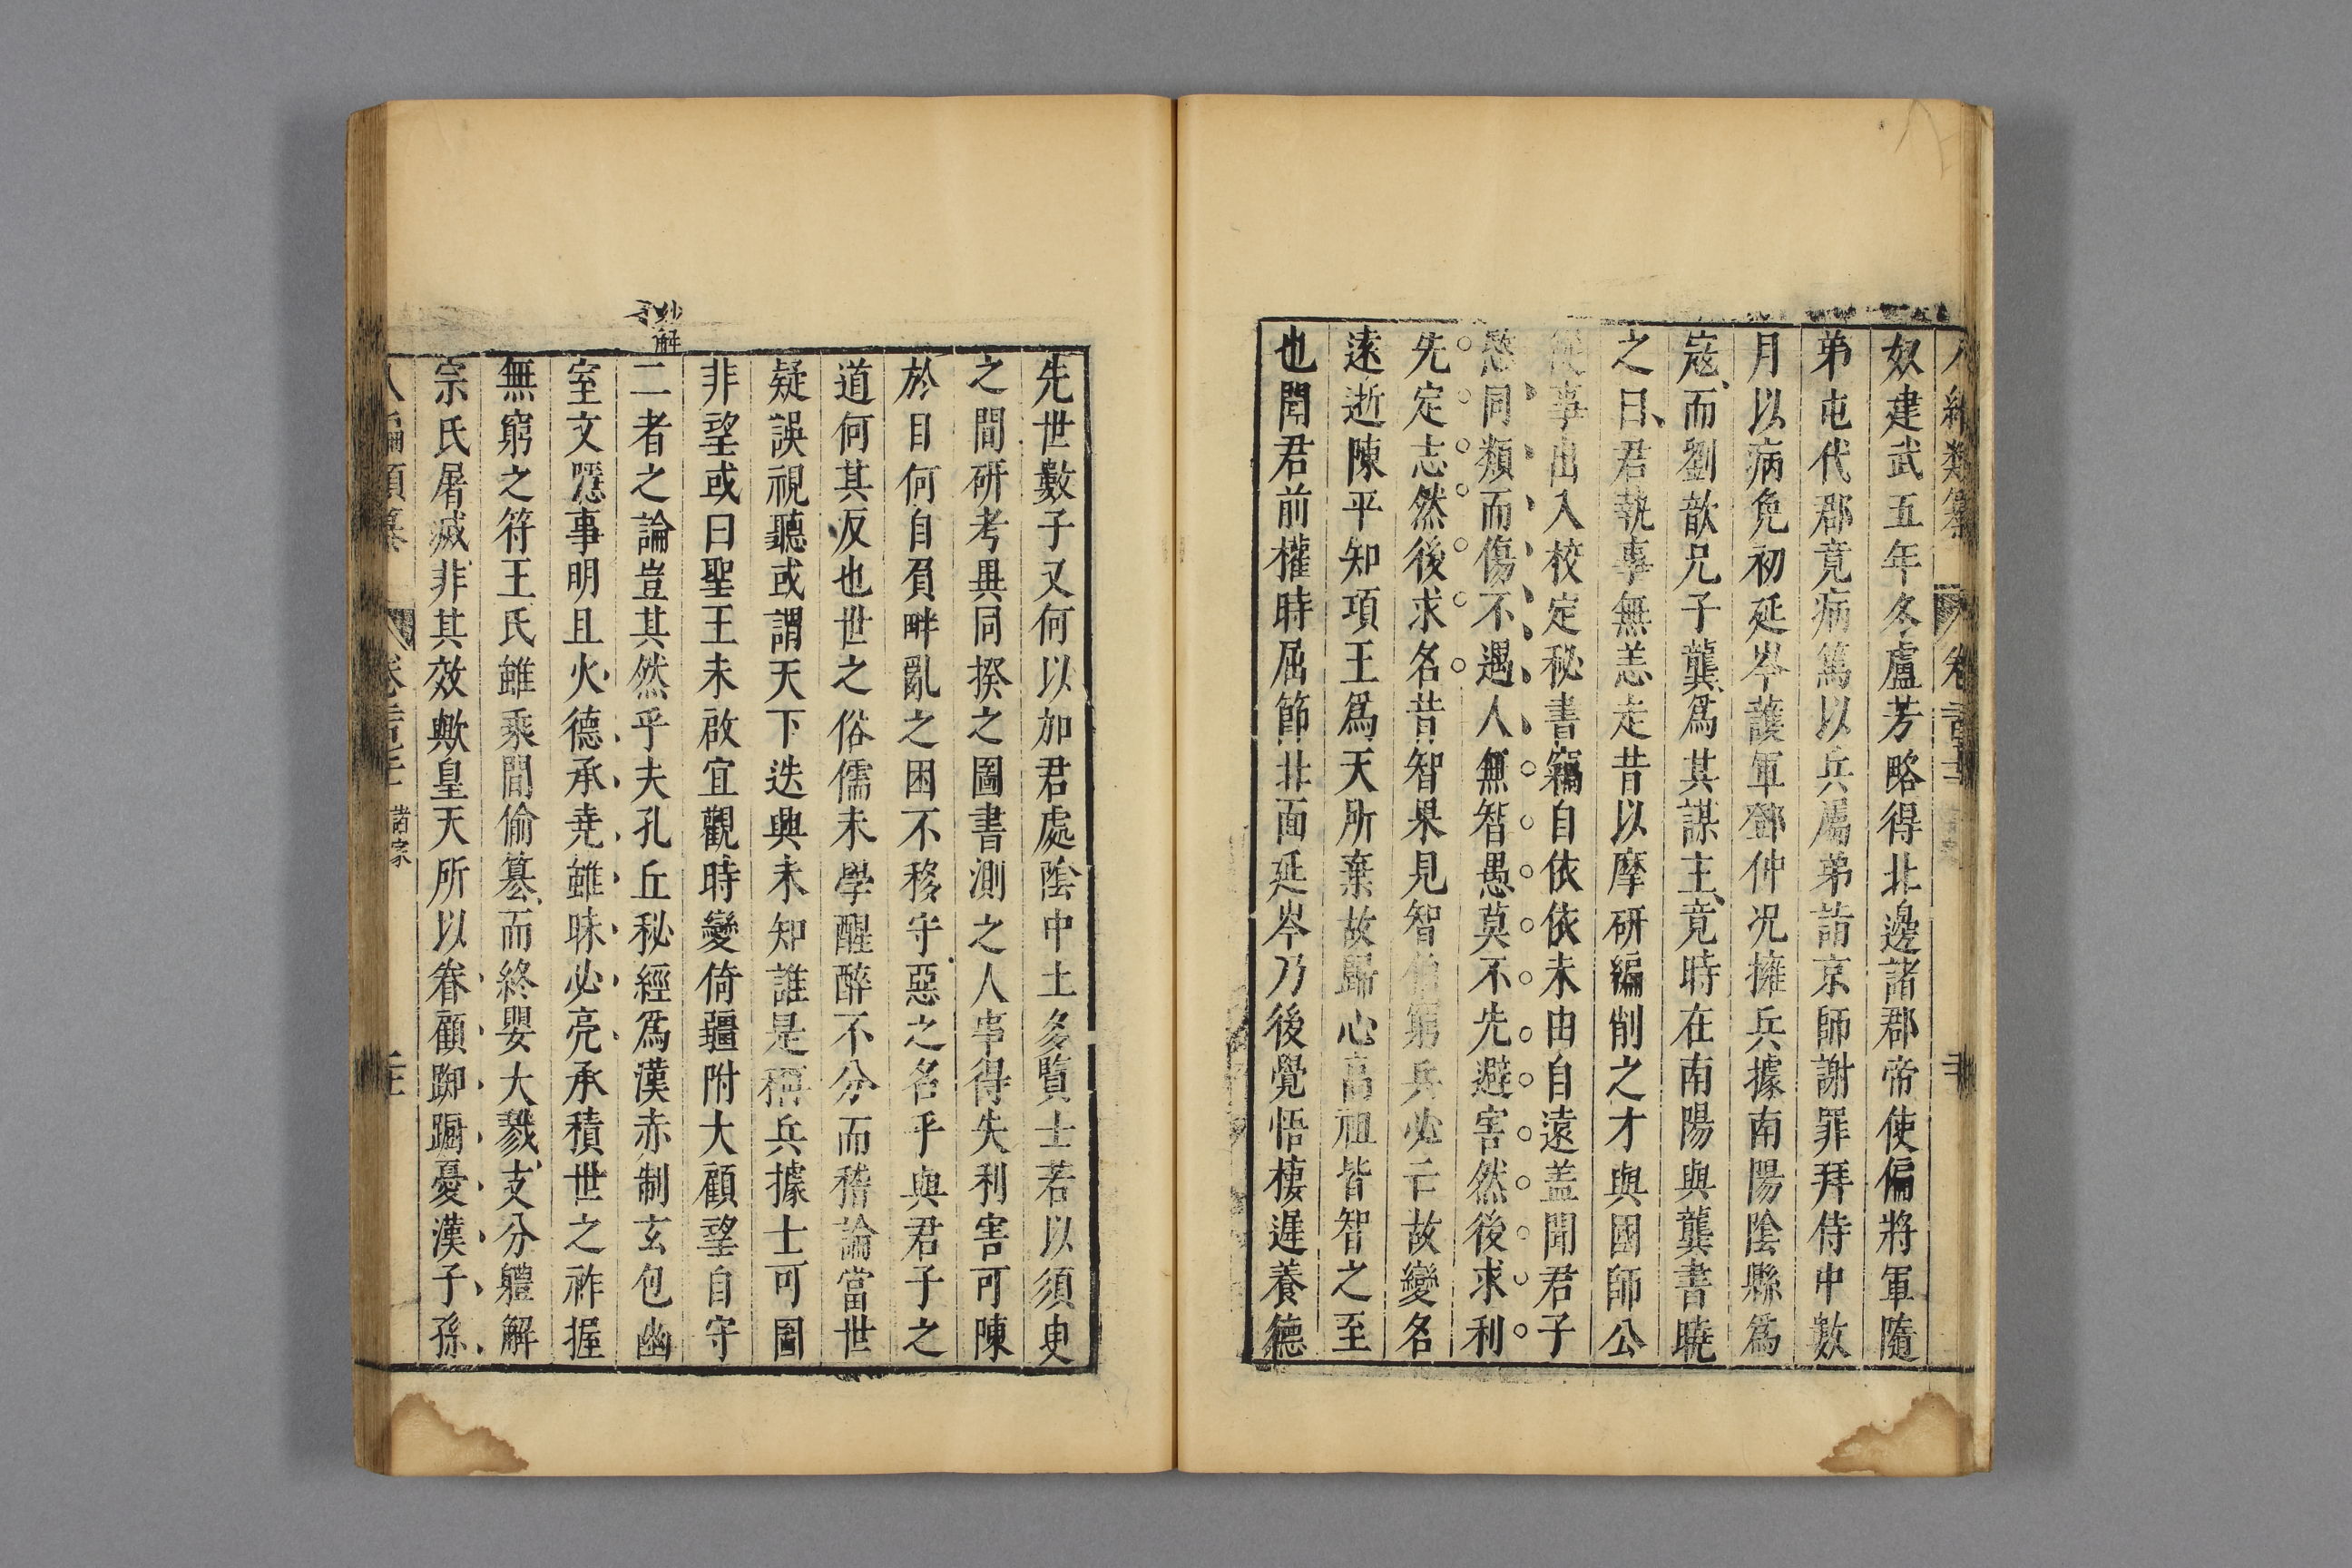 奴建武五年冬盧芳略得北邊諸郡帝使偏將軍隨
弟屯代郡竟病篤以兵屬弟詣京師謝罪拜侍中數
月以病免初延岑護軍鄧仲况擁兵據南陽陰縣爲
寇而劉歆兄子龔爲其謀主竟時在南陽與龔書曉
之曰君執事無恙走昔以摩研編削之才與國師公
從事出入校定秘書竊自依依未由自遠盖聞君子
愍同類而傷不遇人無智愚莫不先避害然後求利
先定志然後求名昔智果見智伯窮兵必亡故變名
遠逝陳平知項王爲天所棄故歸心高祖皆智之至
也聞君前權時屈節北面延岑乃後覺悟棲遲養德
先世數子又何以加君處陰中土多賢士若以須臾
之間研考異同揆之圖書測之人事得失利害可陳
於目何自負畔亂之困不移守惡之名乎與君子之
道何其反也世之俗儒末學醒醉不分而稽論當世
疑誤視聽或謂天下迭興未知誰是稱兵據士可圖
非望或曰聖王未啟宜觀時變倚疆附大顧望自守
二者之論豈其然乎夫孔丘秘經爲漢赤制玄包幽
室文隱事明且火德承堯雖昧必亮承積世之祚握
無窮之符王氏雖乘間偷簒而終嬰大戮支分軆解
宗氏屠滅非其效歟皇天所以眷顧踟蹰憂漢子孫
諸家